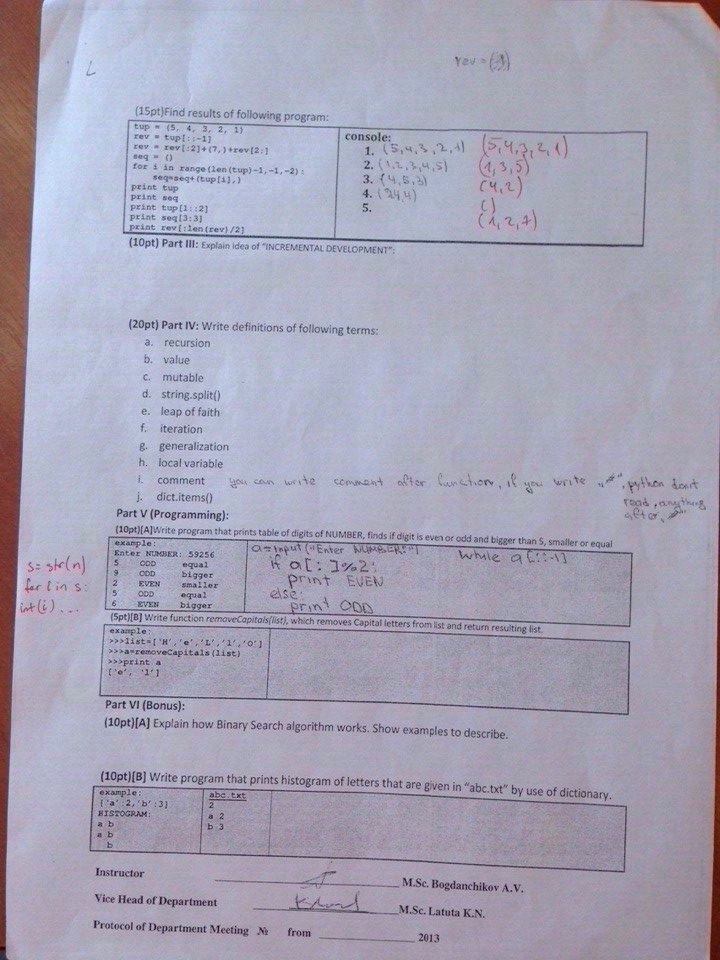 rev = (-1)
(15pt)Find results of following program:
tup = (5, 4, 3, 2, 1)
rev = tup[::-1]
rev = rev[:2]+(7,)+rev[2:]
seq = ()
for i in range(len(tup)-1,-1,-2):
seq=seq+(tup[i],)
print tup
print seq
print tup[1::2]
print seq[3:3]
print rev[:len(rev)/2]
console:
1. (5,4,3,2,1) (5,4,3,2,1)
2. (1,2,3,4,5) (1,3,5)
3. (4,5,3) (4,2)
4. ( ()
5. (1,2,7)
(10pt) Part III: Explain idea of "INCREMENTAL DEVELOPMENT":
(20pt) Part IV: Write definitions of following terms:
a. recursion
b. value
c. mutable
d. string.split()
e. leap of faith
f. iteration
g. generalization
h. local variable
i. comment you can write comment after function, if you write „#", python don't
read, anything
after „#"
j. dict.items()
Part V (Programming):
(10pt)[A]Write program that prints table of digits of NUMBER, finds if digit is even or odd and bigger than 5, smaller or equal
example:
Enter NUMBER: 59256
5 ODD equal
9 ODD bigger
2 EVEN smaller
5 ODD equal
6 EVEN bigger
a=input("Enter NUMBER:") while a[::-1]
if a[:]%2:
print EVEN
else:
print ODD
s= str(n)
for i in s:
int(i)...
(5pt)[B] Write function removeCapitals(list), which removes Capital letters from list and return resulting list.
example:
>>>list=['H','e','L','l','O']
>>>a=removeCapitals(list)
>>>print a
['e', 'l']
Part VI (Bonus):
(10pt)[A] Explain how Binary Search algorithm works. Show examples to describe.
(10pt)[B] Write program that prints histogram of letters that are given in "abc.txt" by use of dictionary.
example:
{'a':2,'b':3}
HISTOGRAM:
a b
a b
b
abc.txt
2
a 2
b 3
Instructor M.Sc. Bogdanchikov A.V.
Vice Head of Department M.Sc. Latuta K.N.
Protocol of Department Meeting № from 2013